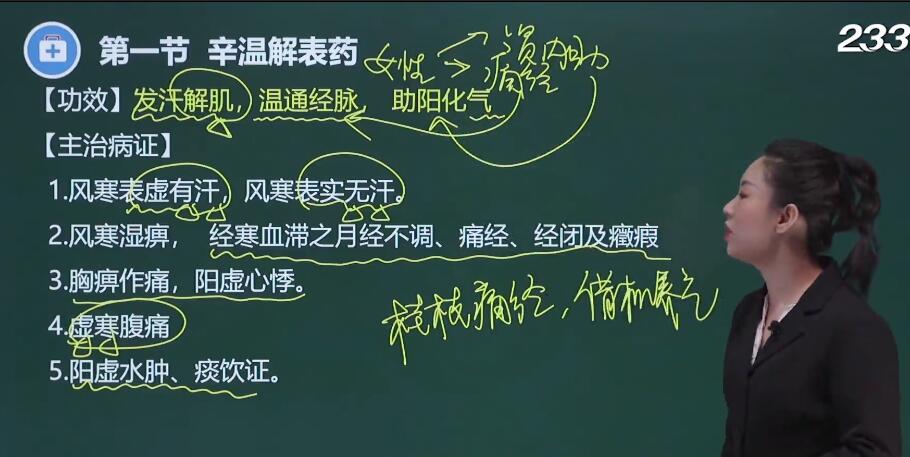 第一节 辛温解表药
233
女性
贤内助
痛经
【功效】发汗解肌，温通经脉，助阳化气
【主治病证】
1.风寒表虚有汗，风寒表实无汗。
2.风寒湿痹， 经寒血滞之月经不调、痛经、经闭及癥瘕
3.胸痹作痛，阳虚心悸。
4.虚寒腹痛
5.阳虚水肿、痰饮证。
桂枝痛经，借机暴气